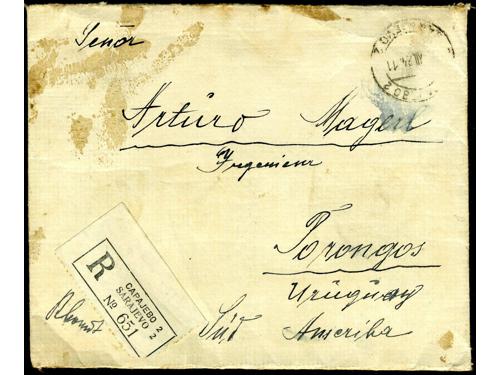 Señor
Arturo Mayer
Ingenieur
Porongos
Uruguay
Süd Amerika
R
САРАЈЕВО 2
SARAJEVO 2
№ 651